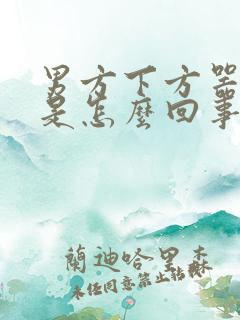 男方下方咒
是怎麼回事
蘭迪哈里森
未经同意禁止转载